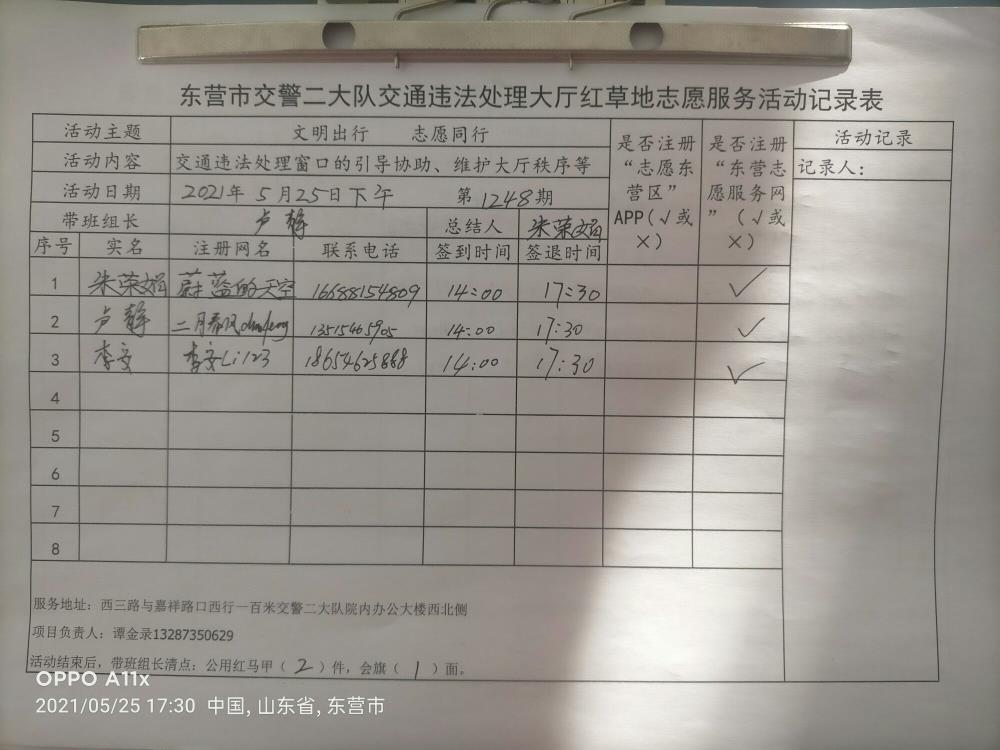 东营市交警二大队交通违法处理大厅红草地志愿服务活动记录表
活动主题 文明出行 志愿同行 是否注册“志愿东营区”APP(√或×) 是否注册“东营志愿服务网”(√或×) 活动记录
活动内容 交通违法处理窗口的引导协助、维护大厅秩序等 记录人：
活动日期 2021年5月25日下午 第1248期
带班组长 卢静 总结人 朱荣娟
序号 实名 注册网名 联系电话 签到时间 签退时间
1 朱荣娟 蔚蓝的天空 16688154809 14:00 17:30 √
2 卢静 二月春风 13515465905 14:00 17:30 √
3 李安 李安Li123 18654625888 14:00 17:30 √
4
5
6
7
8
服务地址：西三路与嘉祥路口西行一百米交警二大队院内办公大楼西北侧
项目负责人：谭金录13287350629
活动结束后，带班组长清点：公用红马甲（2）件，会旗（1）面。
OPPO A11x
2021/05/25 17:30 中国, 山东省, 东营市